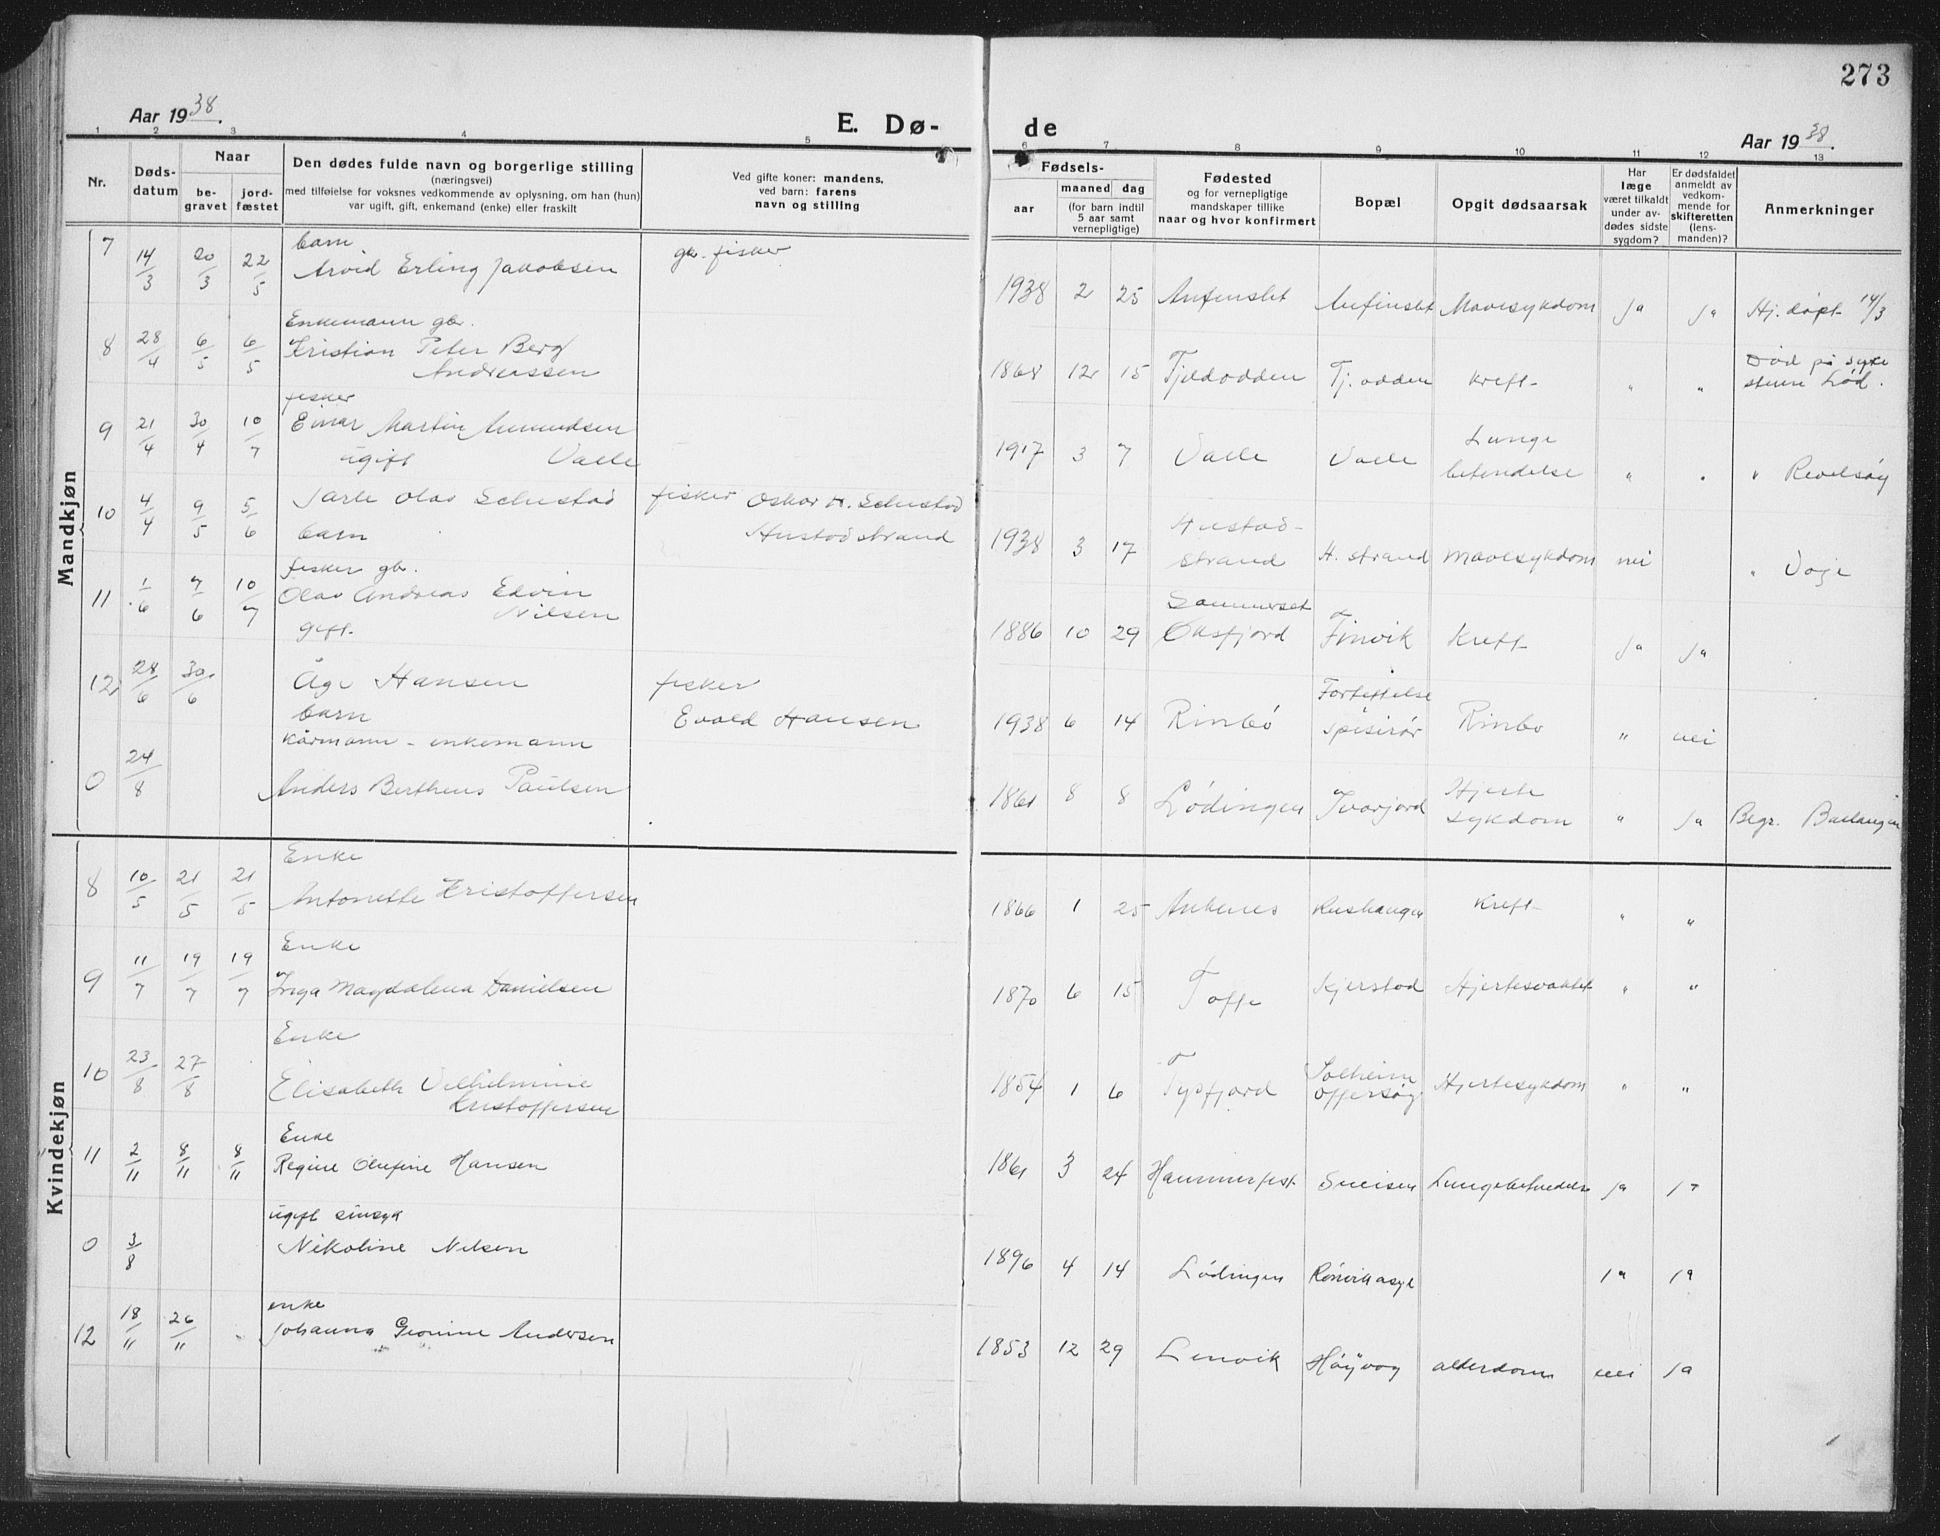 273
Aar 1938.
E. Dø-
de
Aar 1938.
1 2 3 4 5 6 7 8 9 10 11 12 13
Nr.
Døds-
datum
Naar
be-
gravet
jord-
fæstet
Den dødes fulde navn og borgerlige stilling
(næringsvei)
med tilføielse for voksnes vedkommende av oplysning, om han (hun)
var ugift, gift, enkemand (enke) eller fraskilt
Ved gifte koner: mandens,
ved barn: farens
navn og stilling
Fødsels-
aar
maaned dag
(for barn indtil
5 aar samt
vernepligtige)
Fødested
og for vernepligtige
mandskaper tillike
naar og hvor konfirmert
Bopæl
Opgit dødsaarsak
Har
læge
været tilkaldt
under av-
dødes sidste
sygdom?
Er dødsfaldet
anmeldt av
vedkom-
mende for
skifteretten
(lens-
manden)?
Anmerkninger
Mandkjøn
barn
7 14/3 20/3 22/5 Arvid Erling Jakobsen gb. fisker 1938 2 25 Anfinslet Anfinslet Mavesykdom Ja Ja Hj. døpt 14/3
Enkemann gbr.
8 28/4 6/5 6/5 Kristian Peter Berg
Andreassen 1868 12 15 Tjeldodden Tj. odden Kreft " " Død på syke
stuen Lød.
fisker
9 21/4 30/4 10/7 Einar Martin Amundsen
ugift Valle 1917 3 7 Valle Valle Lunge
betendelse " " "
10 4/4 9/5 5/6 Jarle Olav Selnstad
barn
fisker Oskar H. Selnstad
Hustadstrand
1938 3 17 Hustad-
strand H. strand Mavesykdom nei "
fisker gb.
11 1/6 7/6 10/7 Olav Andreas Edvin
Nilsen
gift 1886 10 29
Øksfjord Finvik Kreft Ja Ja
12 28/6 30/6 Åge Hansen
barn
fisker
Evald Hansen
1938 6 14 Rinbø
spiserør Rinbø " nei
kårmann - enkemann
0 24/8 Anders Bertheus Paulsen 1861 8 8 Lødingen Ivarjord Hjerte
sykdom " Ja Begr. Ballangen
Kvindekjøn
Enke
8 10/5 21/5 21/5 Antonette Kristoffersen 1866 1 25 Ankenes Kreft " "
Enke
9 11/7 19/7 19/7 Inga Magdalena Danielsen 1870 6 15 Toffe Kjerstad " "
Enke
10 23/8 27/8 Elisabeth Vilhelmine
Kristoffersen 1854 1 6 Tysfjord Solheim
Offersøy Hjertesykdom " "
Enke
11 2/11 8/11 8/11 Regine Olufine Hansen 1861 3 24 Hammerfest Sneisen Lungebetendelse ja ja
ugift sinsyk
0 3/8 Nikoline Nilsen 1896 4 14 Lødingen Rønvik asyl ja ja
enke
12 18/11 26/11 Johanna Andersen 1853 12 29 Lenvik Høyvåg alderdom nei ja